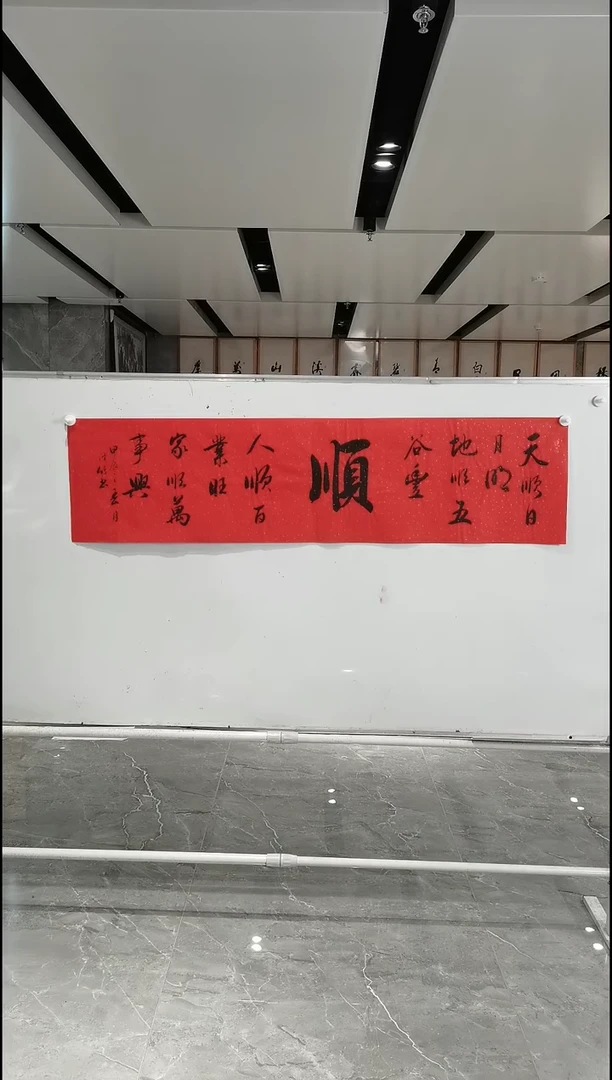 天順日
月明
地順五
谷豐
順
人順百
業旺
家順萬
事興